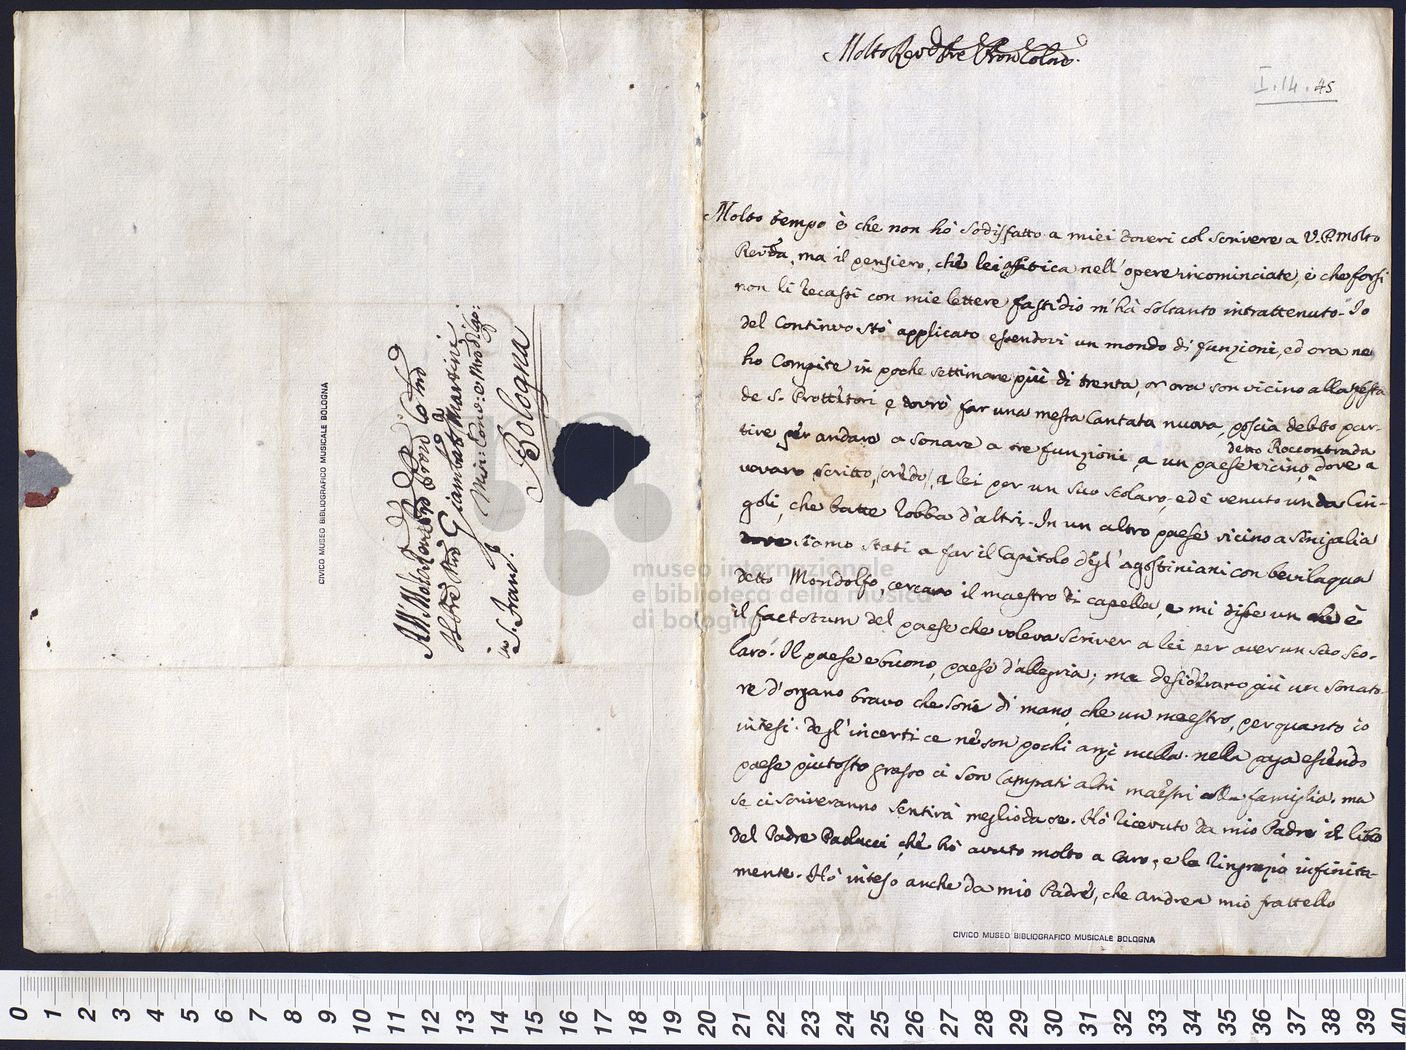 Molto Revd Pre Pron Colmo.
I.14.45
Molto tempo è che non hò sodisfatto a miei doveri col scrivere a V. P. Molto
Revda, ma il pensiero, chè lei affatica nell'opere incominciate, e che forsi
non li recassi con mie lettere fastidio m'hà soltanto intrattenuto. Io
del Continuo stò applicato essendovi un mondo di funzioni, ed ora ne
ho Compite in poche settimane più di trenta, or ora son vicino alla festa
de S. Prottettori e dovrò far una messa Cantata nuova, poscia debbo par-
tire per andare a sonare a tre funzioni a un paese vicino, detto Roccontrada dove a
vevano scritto, credo, a lei per un suo scolaro, ed è venuto un da Cin-
goli, che batte robba d'altri. In un altro paese vicino a Sinigalia
siamo stati a far il Capitolo degl'agostiniani con bevilaqua
detto Mondolfo, cercano il maestro di capella, e mi disse un che è
il factotum del paese che voleva scriver a lei per aver un suo sco-
laro. Il paese e buono, paese d'allegria; ma desiderano più un sonato-
re d'organo bravo che soni di mano, che un maestro, per quanto io
intesi. degl'incerti ce ne son pochi anzi nulla. nella paga essendo
paese piutosto grasso ci son Campati altri maestri colla famiglia. ma
se ci scriveranno sentirà meglio da se. Hò ricevuto da mio Padre il libro
del Padre Paolucci che hò avuto molto a Caro, e la ringrazio infinita-
mente. Hò inteso anche da mio Padre, che andrea mio frattello
CIVICO MUSEO BIBLIOGRAFICO MUSICALE BOLOGNA
All Molto
Giambatta Martini
Min: Conv:
in S. Franc.
Bologna
CIVICO MUSEO BIBLIOGRAFICO MUSICALE BOLOGNA
museo internazionale
e biblioteca della musica
di bologna
0 1 2 3 4 5 6 7 8 9 10 11 12 13 14 15 16 17 18 19 20 21 22 23 24 25 26 27 28 29 30 31 32 33 34 35 36 37 38 39 40